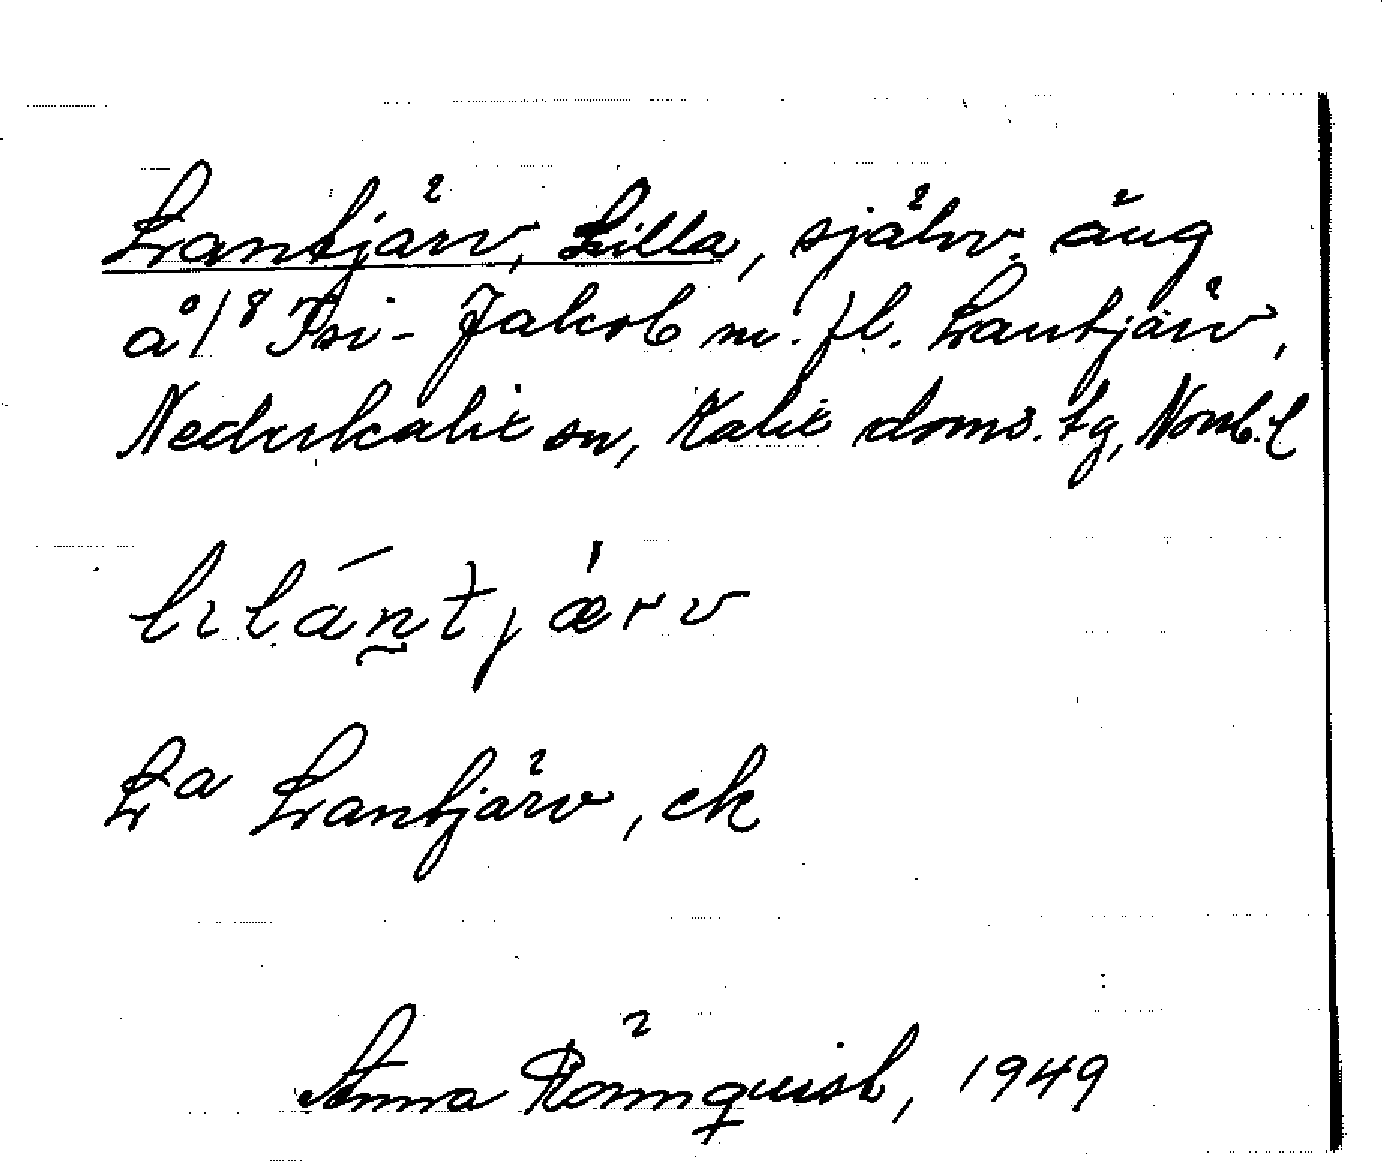 Lantjärv, Lilla, självst. äng
å 1⁸ Isi-Jakob m. fl. Lantjärv,
Nederkalix sn, Kalix doms. tg, Norrb. l
lılántjærv
Lª Lantjärv, ek
Anna Rönnquist, 1949